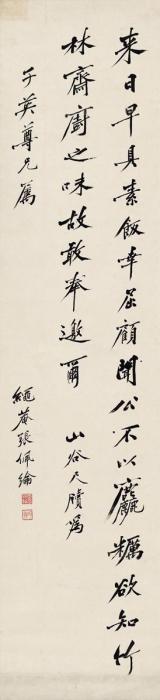 来日早具素飯幸屈顧聞公不以麤糲欲知竹
林齋廚之味故敢奉邀爾
山谷尺牘為
子英尊兄篤
繩菴張佩綸